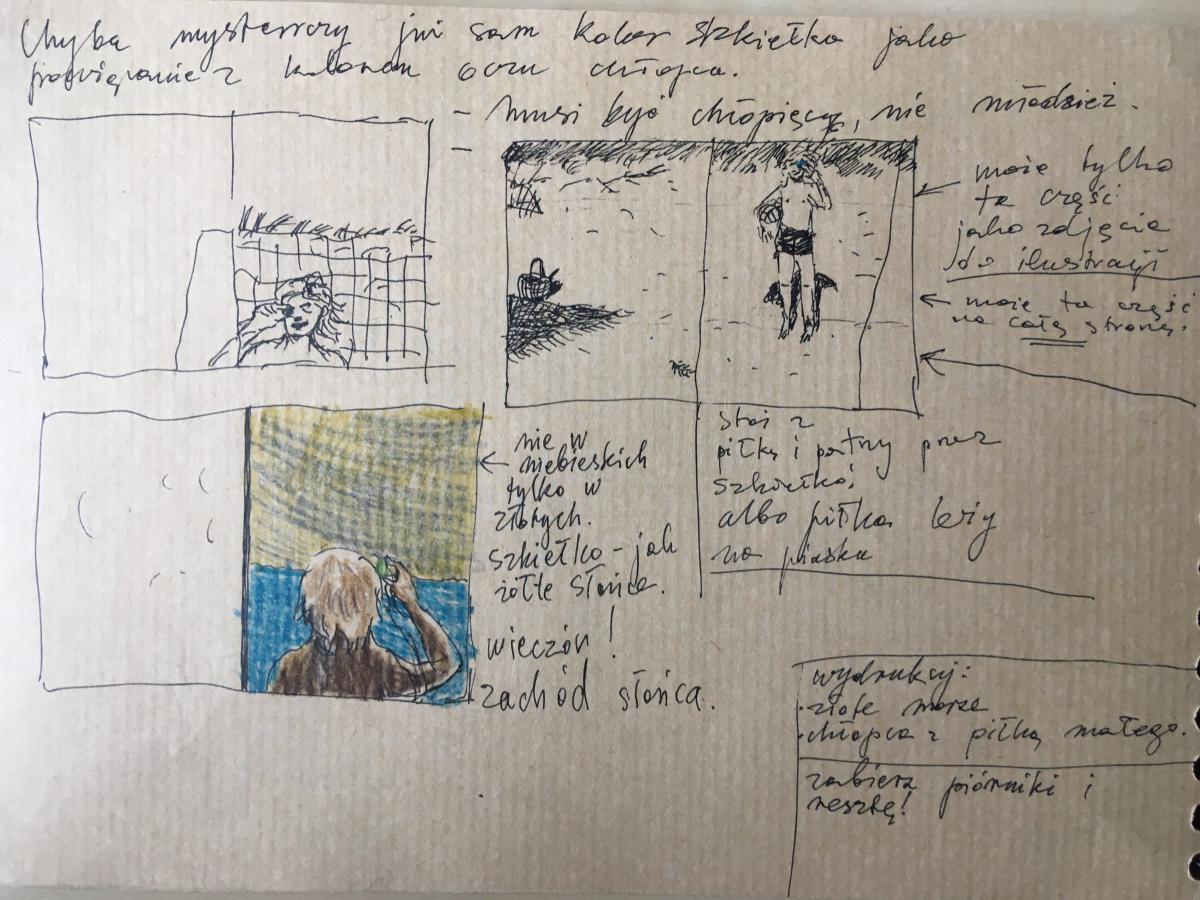 Chyba wystarczy już sam kolor szkiełka jako
powiązanie z kolorem oczu chłopca.
– musi być chłopięcy, nie młodzież.
–
może tylko
ta część
jako zdjęcie
do ilustracji
może ta część
na całą stronę.
nie w
niebieskich
tylko w
złotych.
szkiełko – jak
żółte słońce.
wieczór!
zachód słońca.
stoi z
piłką i patrzy przez
szkiełko;
albo piłka leży
na piasku
wydrukuj:
·złote morze
·chłopca z piłką małego.
zabierz piórniki i
resztę!